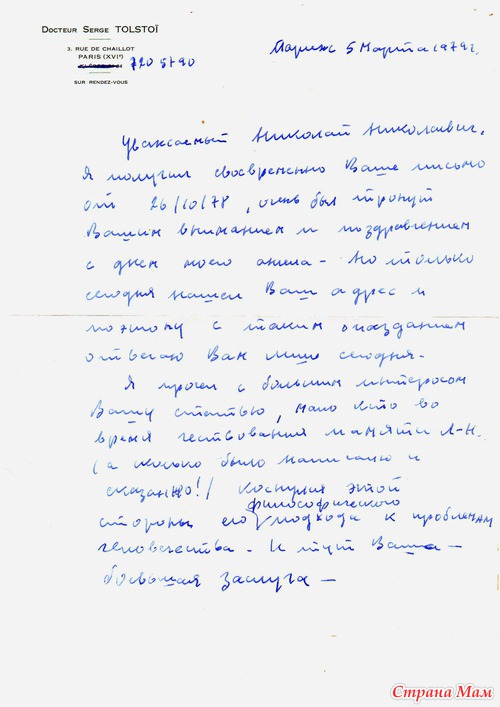 DOCTEUR SERGE TOLSTOÏ
3, RUE DE CHAILLOT
PARIS (XVIe)
720 5790
SUR RENDEZ-VOUS
Париж 5 Марта 1979 г.
Уважаемый Николай Николаевич,
Я получил своевременно Ваше письмо
от 26/10/78, очень был тронут
Вашим вниманием и поздравлением
с днем моего ангела - Но только
сегодня нашел Ваш адрес и
поэтому с таким опозданием
отвечаю Вам лишь сегодня -
Я прочел с большим интересом
Вашу статью, мало кто во
время чествования памяти Л-Н.
(а сколько было написано и
сказанно!) коснулся этой
стороны его философического подхода к проблемам
человечества - И тут Ваша -
большая заслуга -
Страна Мам